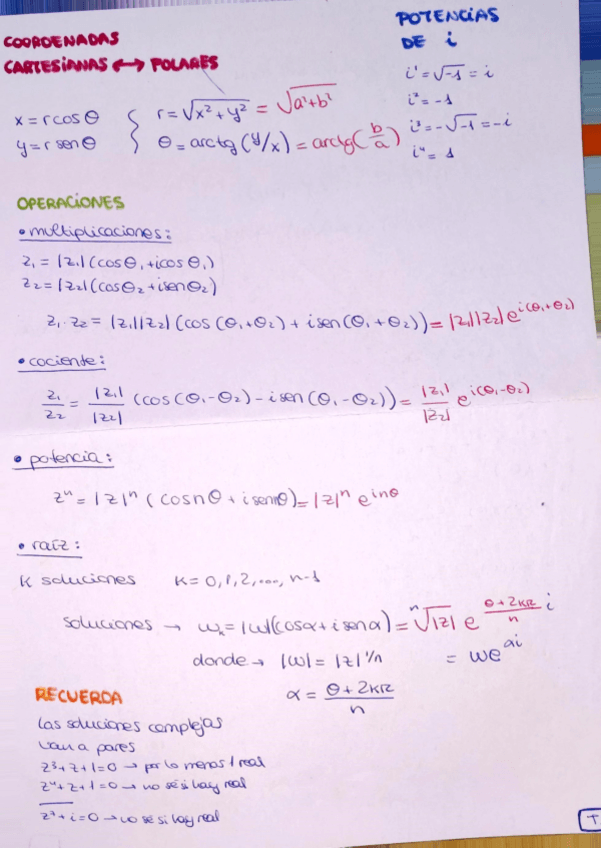 COORDENADAS
CARTESIANAS ↔ POLARES
x = r cos θ
y = r sen θ
r = √(x² + y²) = √(a²+b²)
θ = arctg (y/x) = arctg (b/a)
POTENCIAS
DE i
i¹ = √-1 = i
i² = -1
i³ = -√-1 = -i
i⁴ = 1
OPERACIONES
• multiplicaciones:
z₁ = |z₁| (cos θ₁ + i cos θ₁)
z₂ = |z₂| (cos θ₂ + i sen θ₂)
z₁ · z₂ = |z₁||z₂| (cos (θ₁+θ₂) + i sen (θ₁+θ₂)) = |z₁||z₂| e^{i(θ₁+θ₂)}
• cociente:
z₁/z₂ = |z₁|/|z₂| (cos (θ₁-θ₂) - i sen (θ₁-θ₂)) = |z₁|/|z₂| e^{i(θ₁-θ₂)}
• potencia:
zⁿ = |z|ⁿ (cos nθ + i sen nθ) = |z|ⁿ e^{inθ}
• raíz:
K soluciones K = 0, 1, 2, ..., n-1
soluciones → wₖ = |w| (cos α + i sen α) = ⁿ√|z| e^{(θ + 2kπ)/n i}
donde → |w| = |z|^{1/n} = we^{αi}
α = (θ + 2kπ)/n
RECUERDA
Las soluciones complejas
van a pares
z³ + z + 1 = 0 → por lo menos 1 real
z⁴ + z + 1 = 0 → no sé si hay real
z³ + i = 0 → no sé si hay real
T